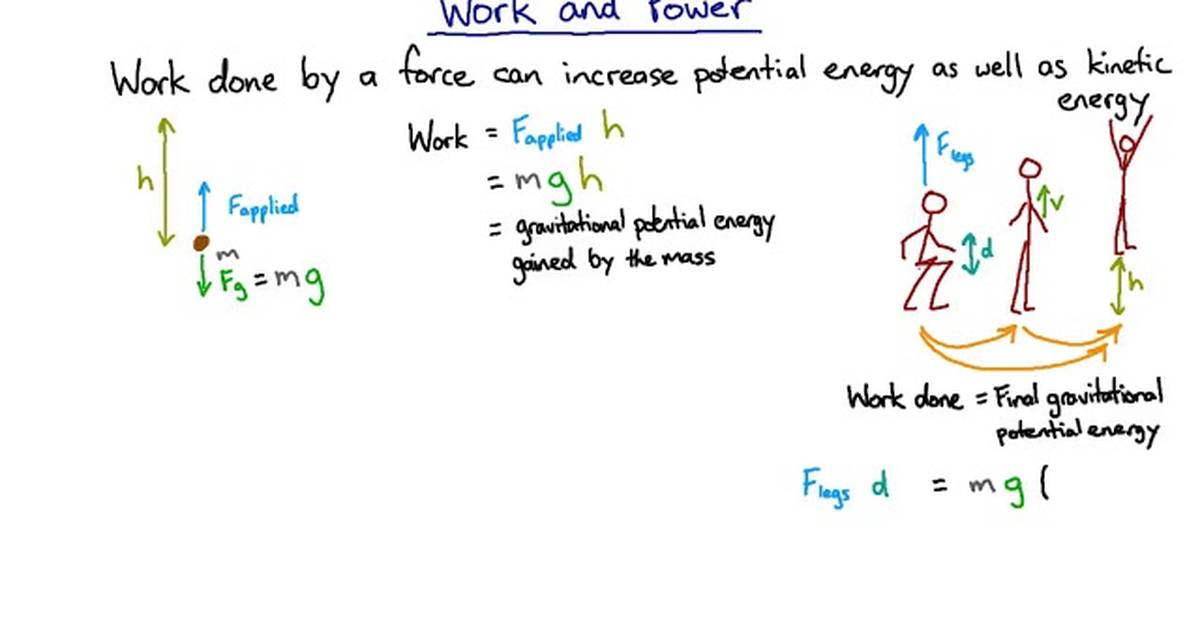 Work and Power
Work done by a force can increase potential energy as well as kinetic
energy
h
Fapplied
m
Fg = mg
Work = Fapplied h
= mgh
= gravitational potential energy
gained by the mass
Flegs
d
v
h
Work done = Final gravitational
potential energy
Flegs d = mg(